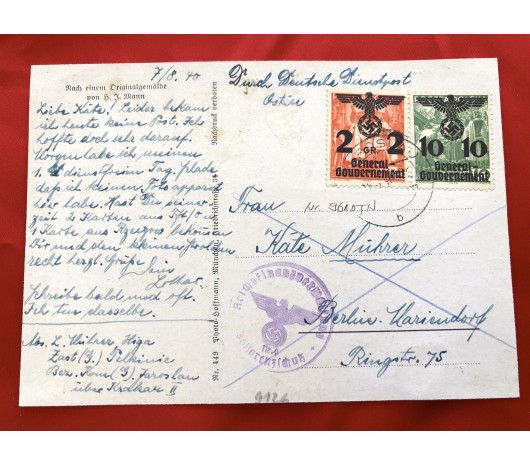 Nach einem Originalgemälde
von H. J. Mann
7/8. 40
Liebe Käte! Leider bekam
ich heute keine Post. Ich
hoffte doch sehr darauf.
Morgen habe ich meinen
1. dienstfreien Tag. Schade
daß ich keinen Fotoapparat
hier habe. Hast Du seiner-
zeit 2 Karten aus
1 Karte aus Rzeszow bekommen
Dir und dem kleinen
recht herzl. Grüße Dein
Lothar
Schreibe bald und oft.
Ich tue dasselbe.
Abs. L. Mührer
Bez. Kom. (G) Jaroslau
über Krakau II
Nachdruck verboten
Nr. 449 Photo-Hoffmann, München, Friedrichstraße 34
Durch Deutsche Dienstpost
Osten
2 2
GR
General-
Gouvernement
10 10
General-
Gouvernement
b
Frau
Käte Mührer
Berlin-Mariendorf
Ringstr. 75
Reichsfinanzverwaltung
Zollgrenzschutz